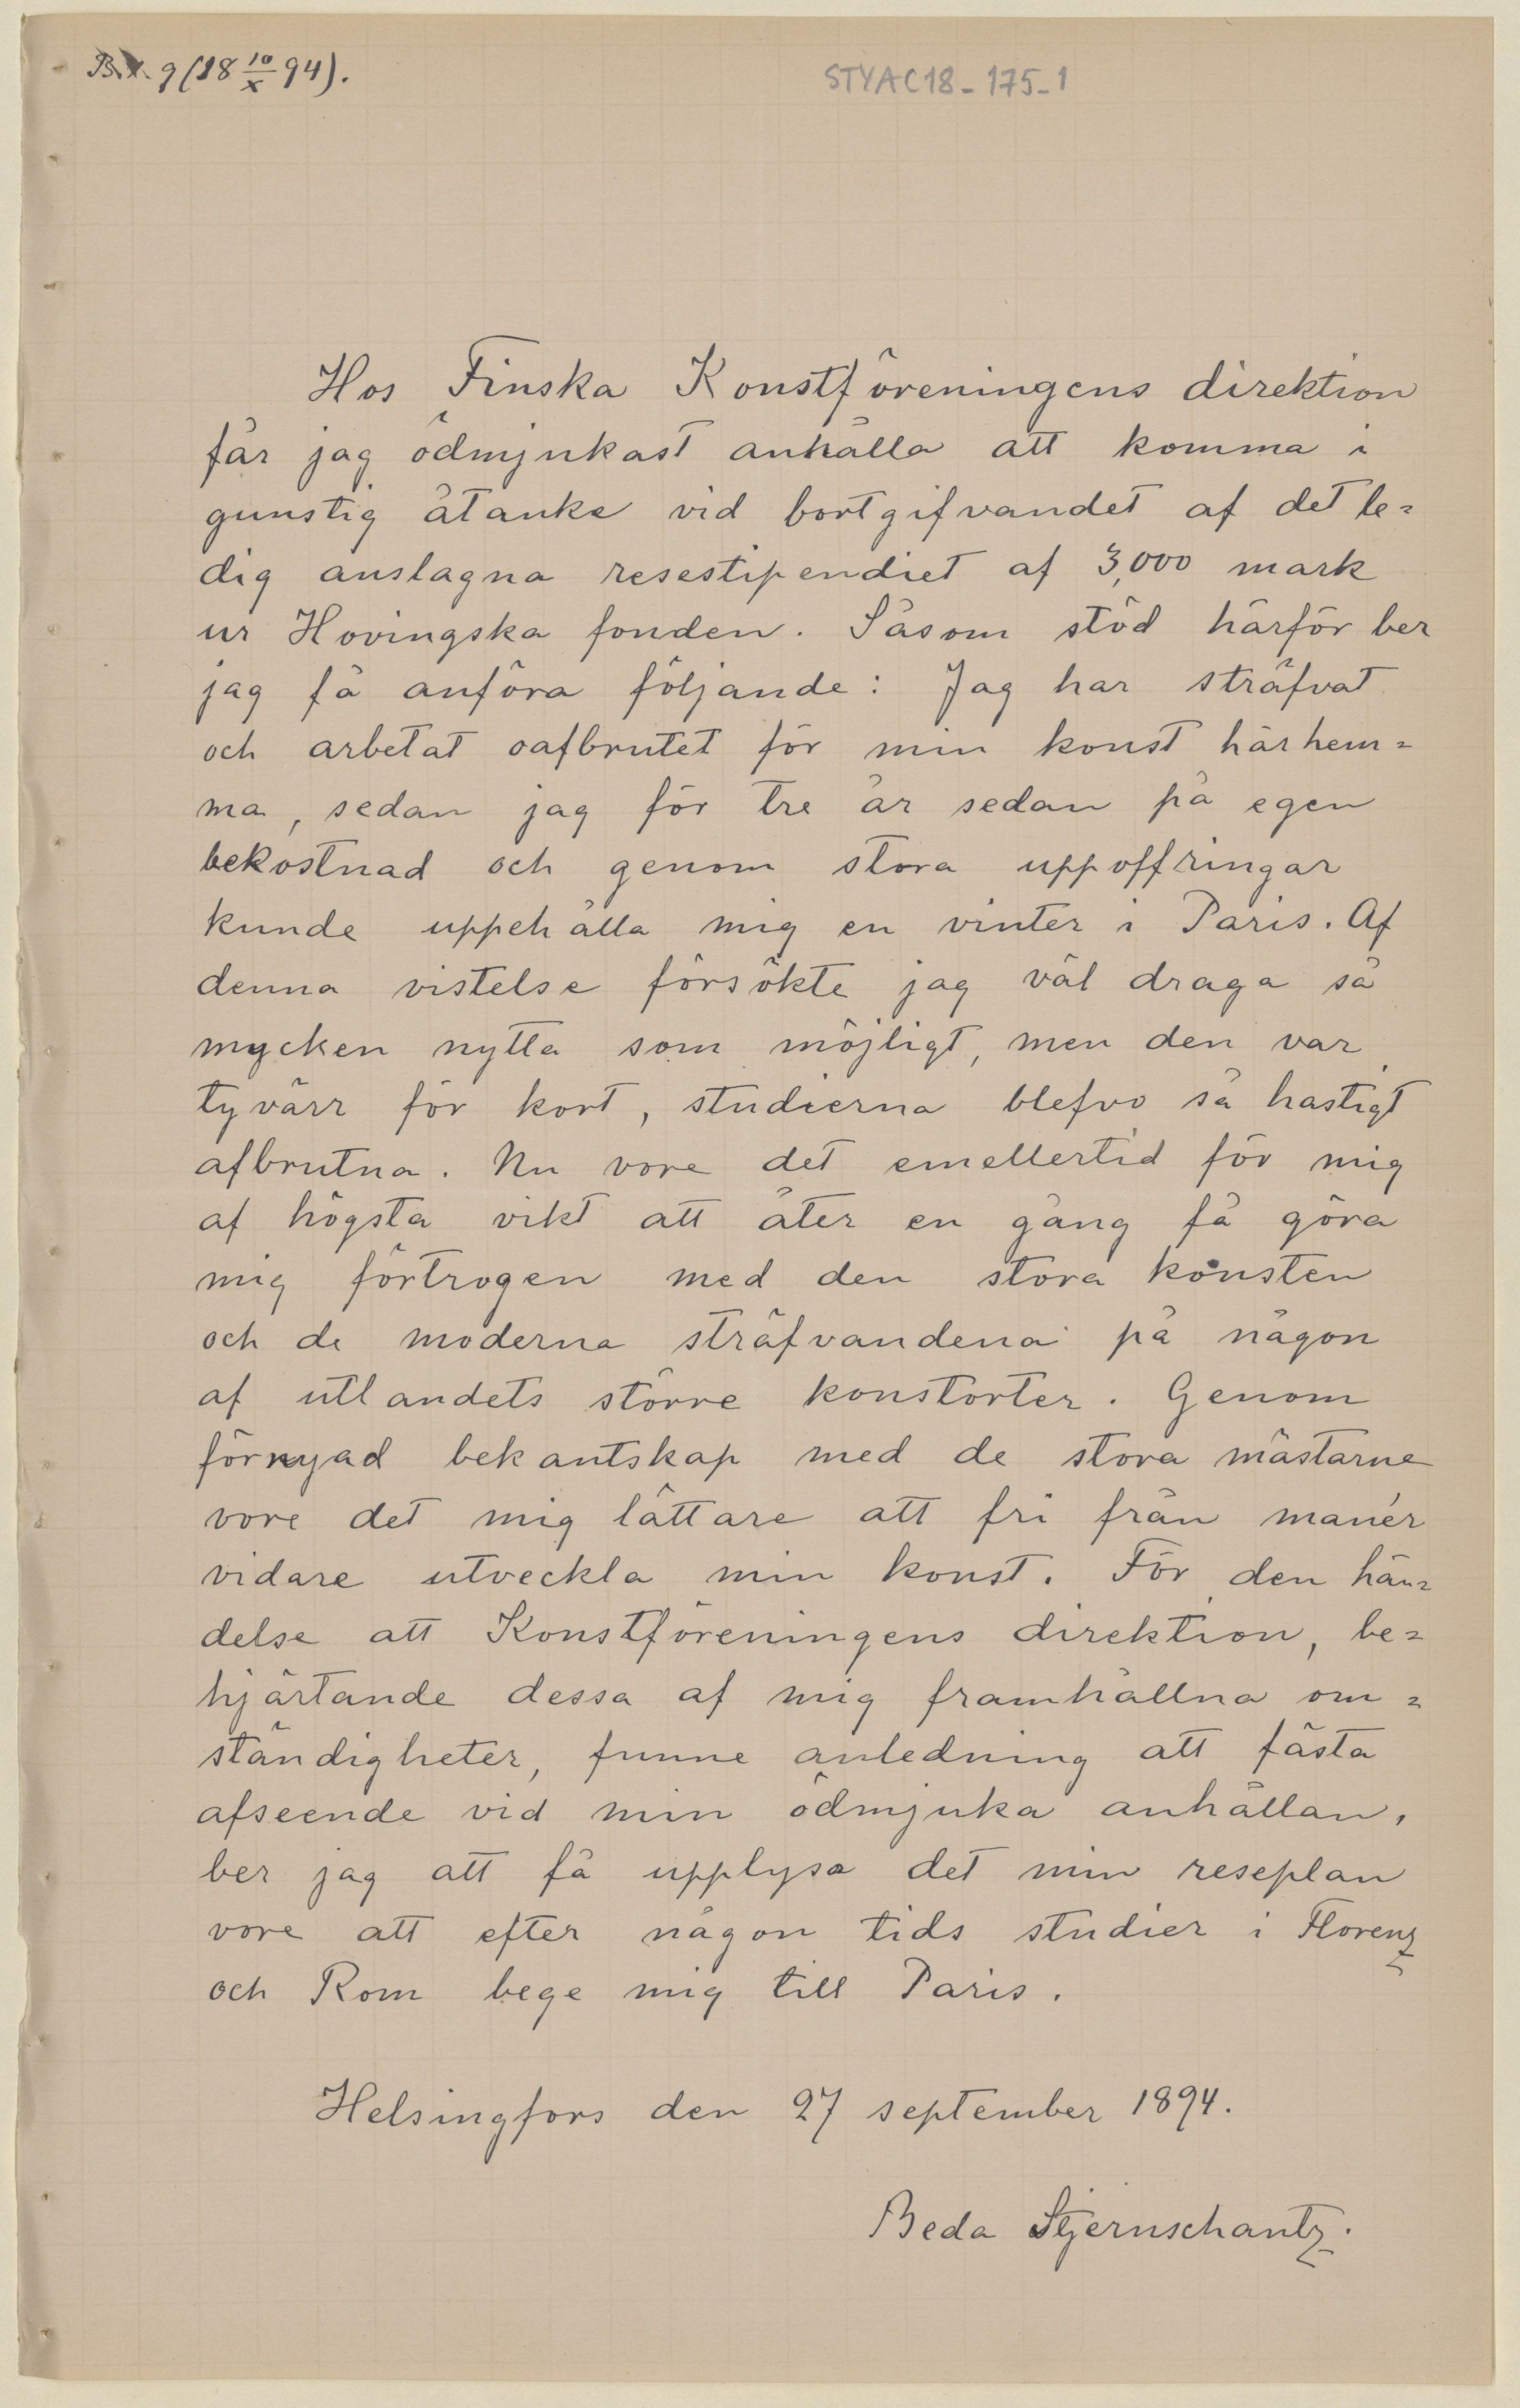 9 (18 10/X 94).
STYAC18-175-1
Hos Finska Konstföreningens direktion
får jag ödmjukast anhålla att komma i
gunstig åtanke vid bortgifvandet af det le=
dig anslagna resestipendiet af 3,000 mark
ur Hovingska fonden. Såsom stöd härför ber
jag få anföra följande: Jag har sträfvat
och arbetat oafbrutet för min konst härhem=
ma, sedan jag för tre år sedan på egen
bekostnad och genom stora uppoffringar
kunde uppehålla mig en vinter i Paris. Af
denna vistelse försökte jag väl draga så
mycken nytta som möjligt, men den var
tyvärr för kort, studierna blefvo så hastigt
afbrutna. Nu vore det emellertid för mig
af högsta vikt att åter en gång få göra
mig förtrogen med den stora konsten
och de moderna sträfvandena på någon
af utlandets större konstorter. Genom
förnyad bekantskap med de stora mästarne
vore det mig lättare att fri från manér
vidare utveckla min konst. För den hän=
delse att Konstföreningens direktion, be=
hjärtande dessa af mig framhållna om=
ständigheter, funne anledning att fästa
afseende vid min ödmjuka anhållan,
ber jag att få upplysa det min reseplan
vore att efter någon tids studier i Florenz
och Rom bege mig till Paris.
Helsingfors den 27 september 1894.
Beda Stjernschantz.